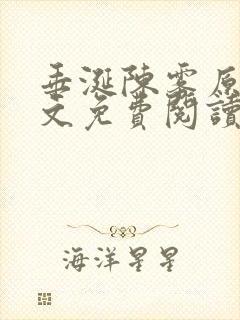 垂涎陳霧原
文免費閱讀
海洋星星